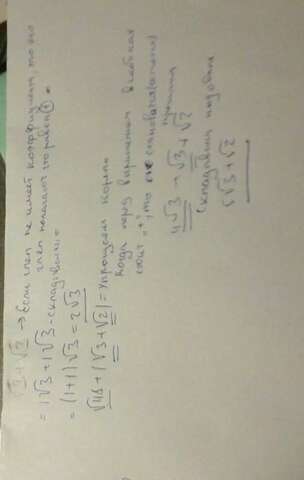 √3+√3 → Если член не имеет коэффициента, то его
член полагают что равен ① =
= 1√3 + 1√3 - складываем =
= (1+1)√3 = 2√3
√48 + (√3+√2) = упрощаем корень
Когда перед выражением в скобках
стоит "+", то
4√3 + √3 + √2
Складываем подобные
5√3 + √2